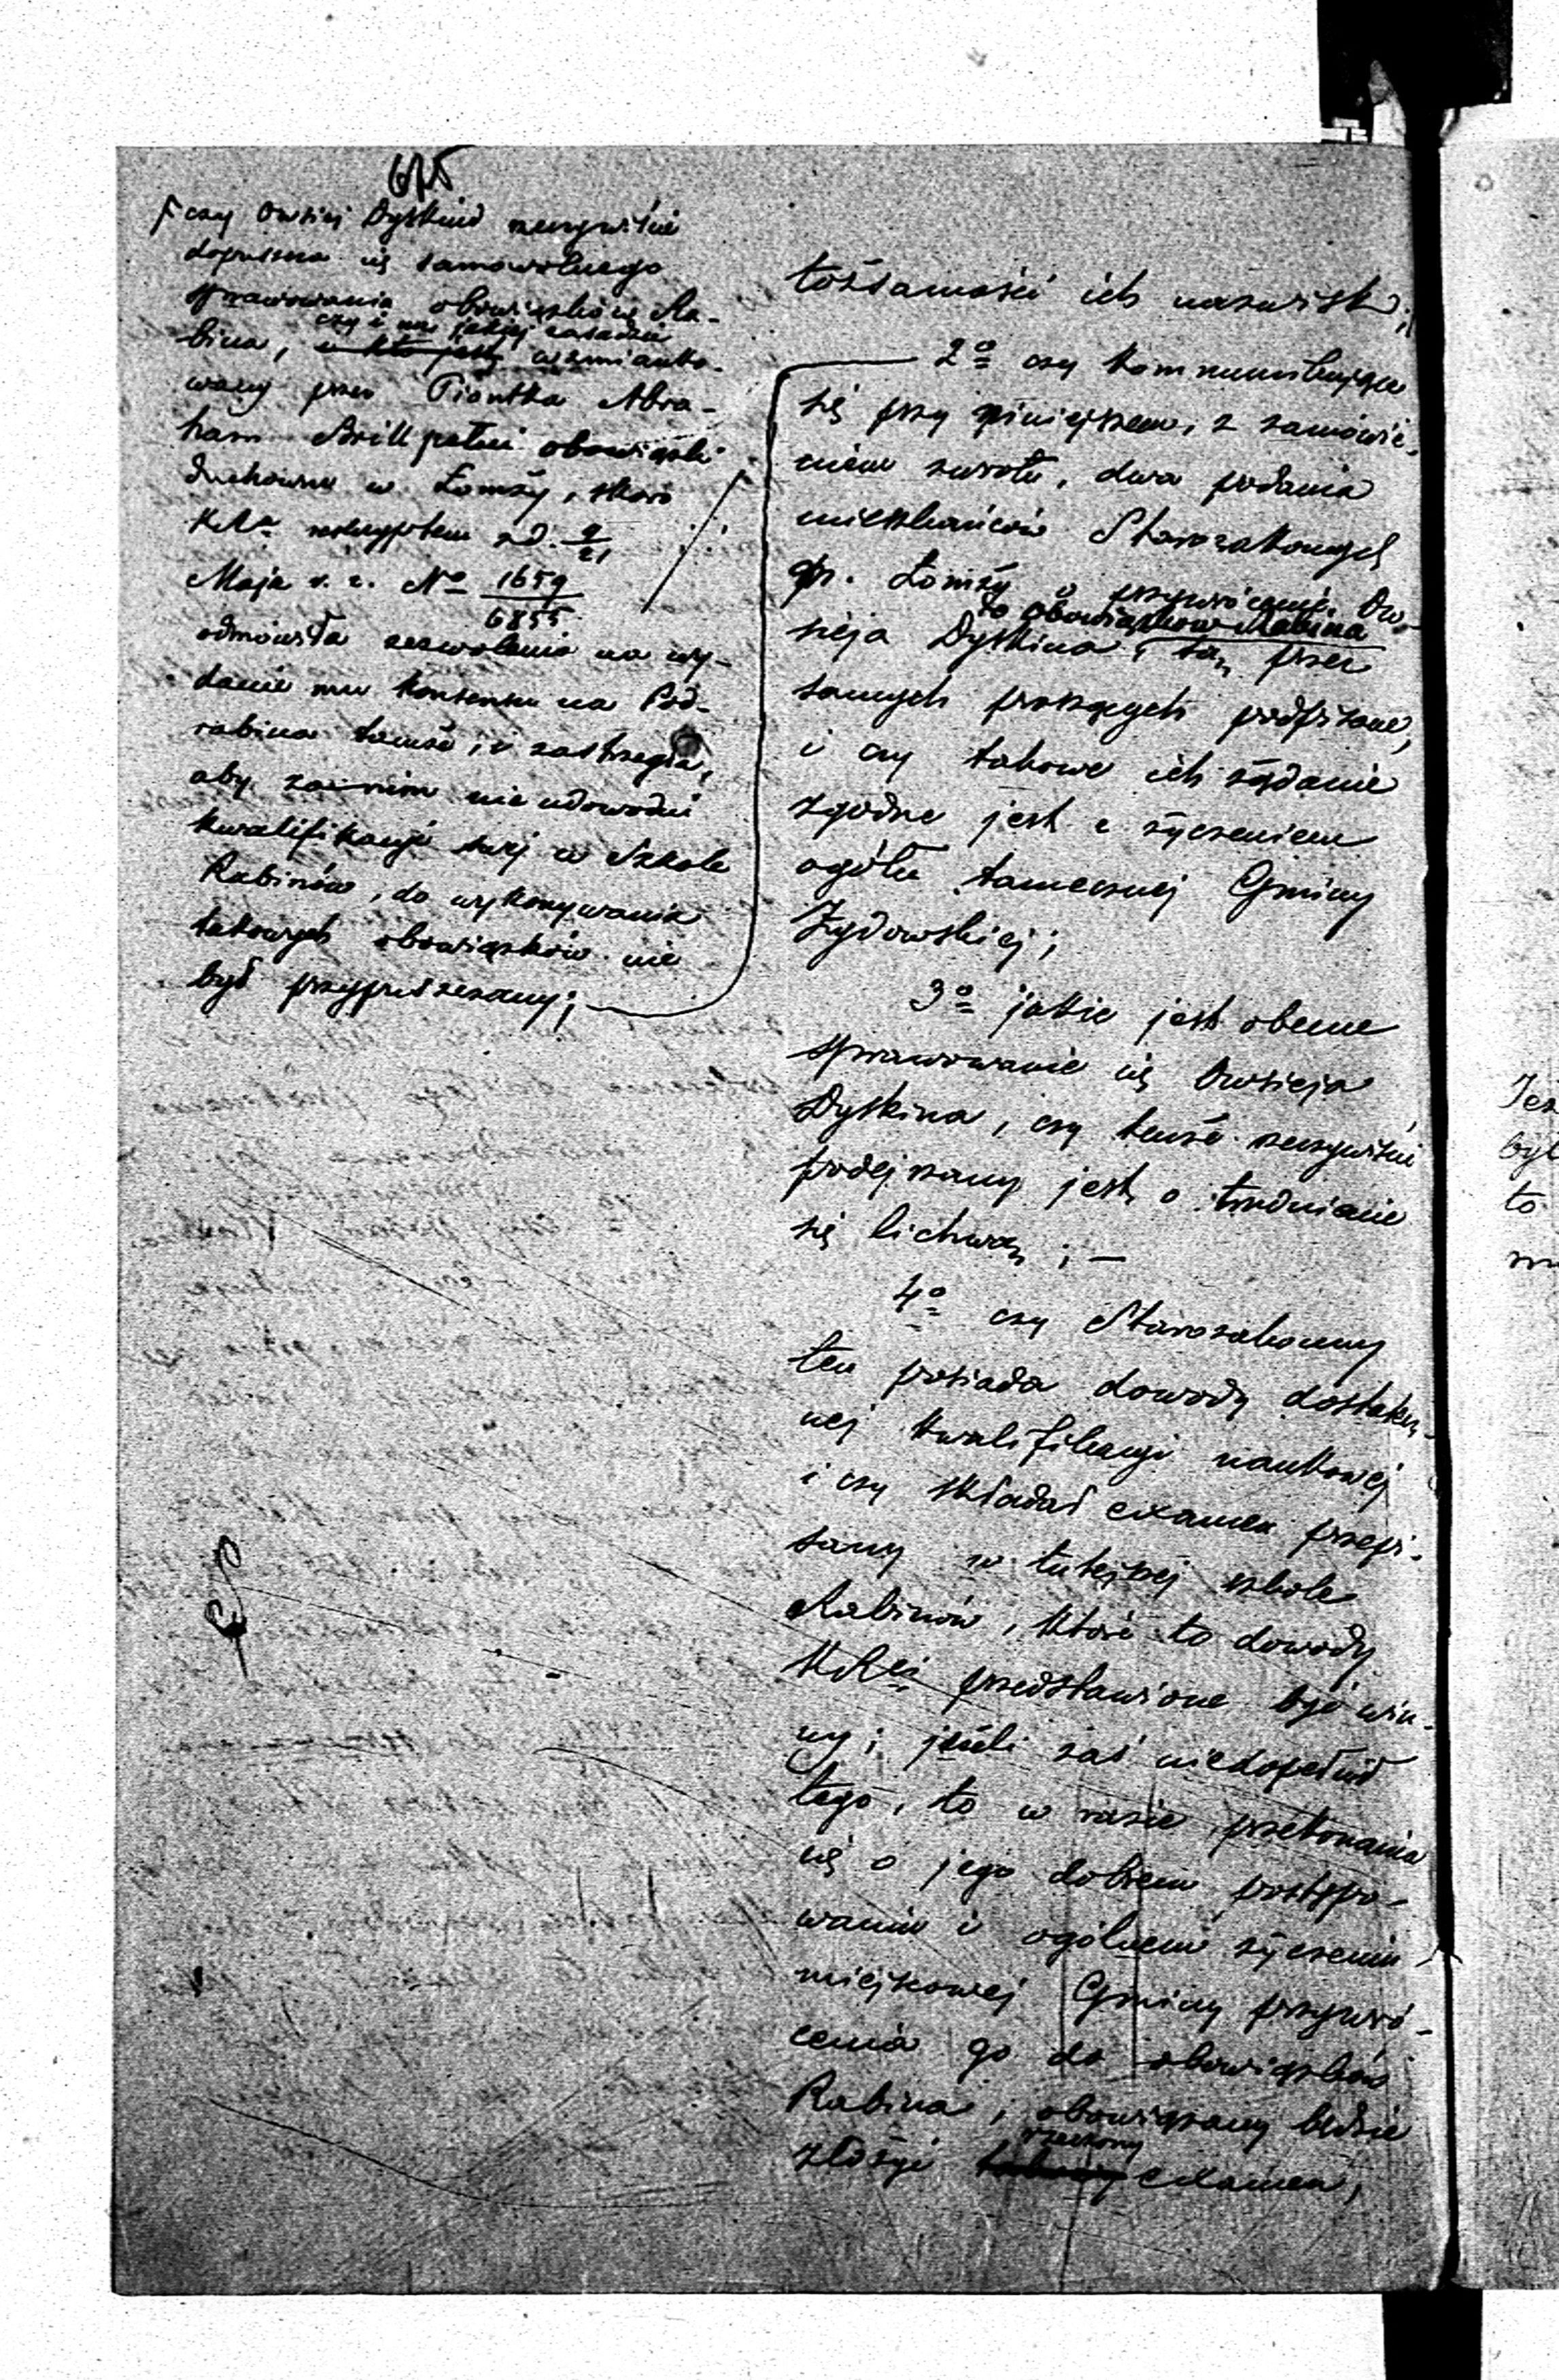 675
czy Owsiej Dyskind rzeczywiście
dopuszcza się samowolnego
sprawowania obowiązków Ra-
czy i na jakiej zasadzie
bina, wzmianko-
wany przez Piontka Abra-
ham Brill pełni obowiązki
duchowne w Łomży, skoro
KRa reskryptem z d. 9/21
Maja r. z. No 1659/6855
odmówiła zezwolenia na wy-
danie mu konsensu na Pod-
rabina tamże, i zastrzegła,
aby zanim nie udowodni
kwalifikacji swej w Szkole
Rabinów, do wykonywania
takowych obowiązków nie
był przypuszczany;
tożsamości ich nazwisk;
2o czy kommunikujące
się przy niniejszem, z zamówie-
niem zwrotu, dwa podania
mieszkańców Starozakonnych
m. Łomży o przywrócenie Ow-
do obowiązków Rabina
sieja Dyskina, są przez
samych proszących podpisane,
i czy takowe ich żądanie
zgodne jest z życzeniem
ogółu tamecznej Gminy
Żydowskiej;
3o jakie jest obecne
sprawowanie się Owsieja
Dyskina, czy tenże rzeczywiście
podejrzany jest o trudnienie
się lichwą; —
4o czy Starozakonny
ten posiada dowody dostatecz-
nej kwalifikacyi naukowej
i czy składał examen przepi-
sany w tutejszej szkole
Rabinów, które to dowody
KRej przedstawione być win-
ny; jeżeli zaś niedopełnił
tego, to w razie przekonania
się o jego dobrem postępo-
waniu i ogólnem życzeniu
miejscowej Gminy przywró-
cenia go do obowiązków
Rabina, obowiązany będzie
rzeczony
złożyć examen,
Jeż
był
to